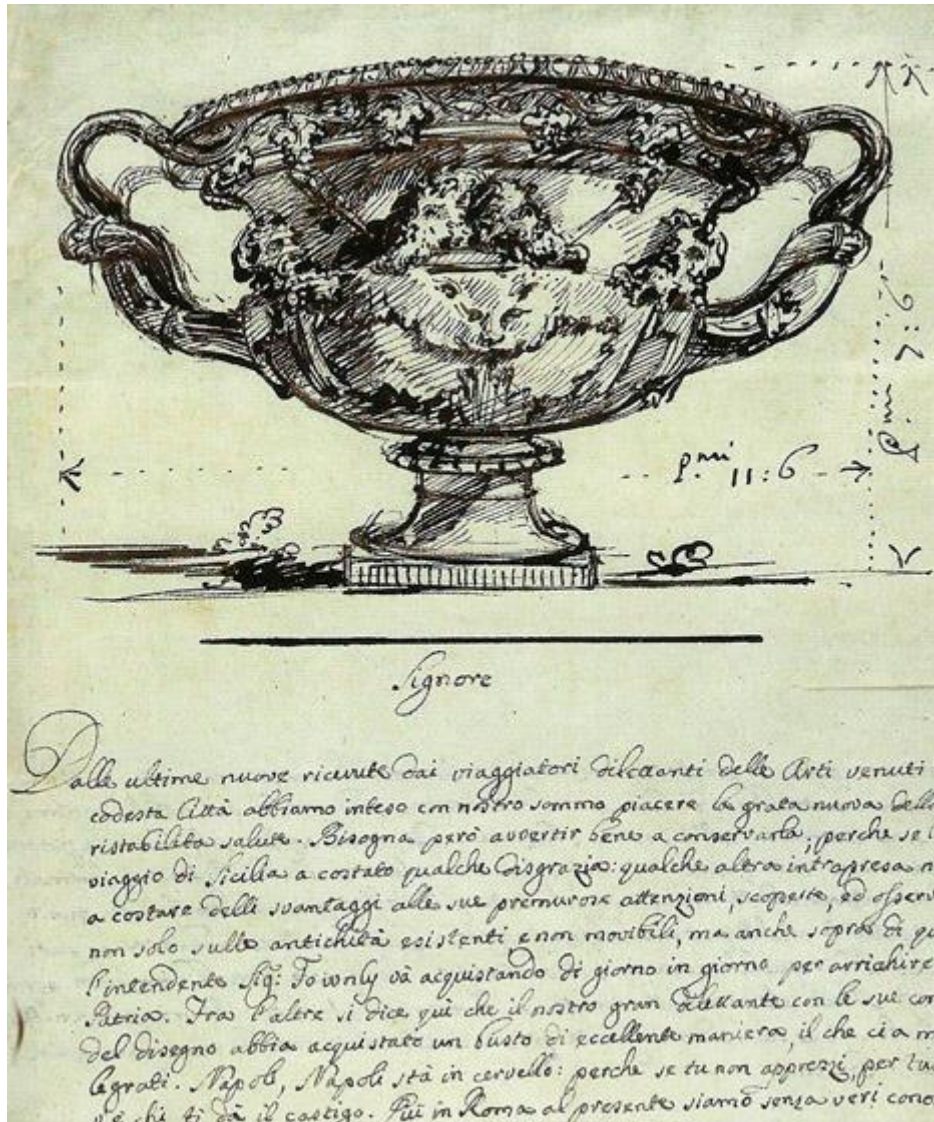 P.mi 7:6
P.mi 11:6
Signore
Dalle ultime nuove ricevute dai viaggiatori dilettanti delle Arti venuti
codesta Città abbiamo inteso con nostro sommo piacere la grata nuova della
ristabilita salute. Bisogna però avvertir bene a conservarla, perche se
viaggio di Sicilia a costato qualche disgrazia: qualche altra intrapresa
a costare delli svantaggi alle sue premurose attenzioni, scoperte, ed osserv
non solo sulle antichità esistenti e non movibili, ma anche sopra di
l'intendente Sig: Townly và acquistando di giorno in giorno per arrichire
Patria. Fra l'altre si dice quì che il nostro gran dilettante con le sue
del disegno abbia acquistato un busto di eccellente maniera, il che ci a
legrati. Napoli, Napoli stà in cervello: perche se tu non apprezzi, per
v'è chi ti dà il castigo. Quì in Roma al presente siamo senza veri